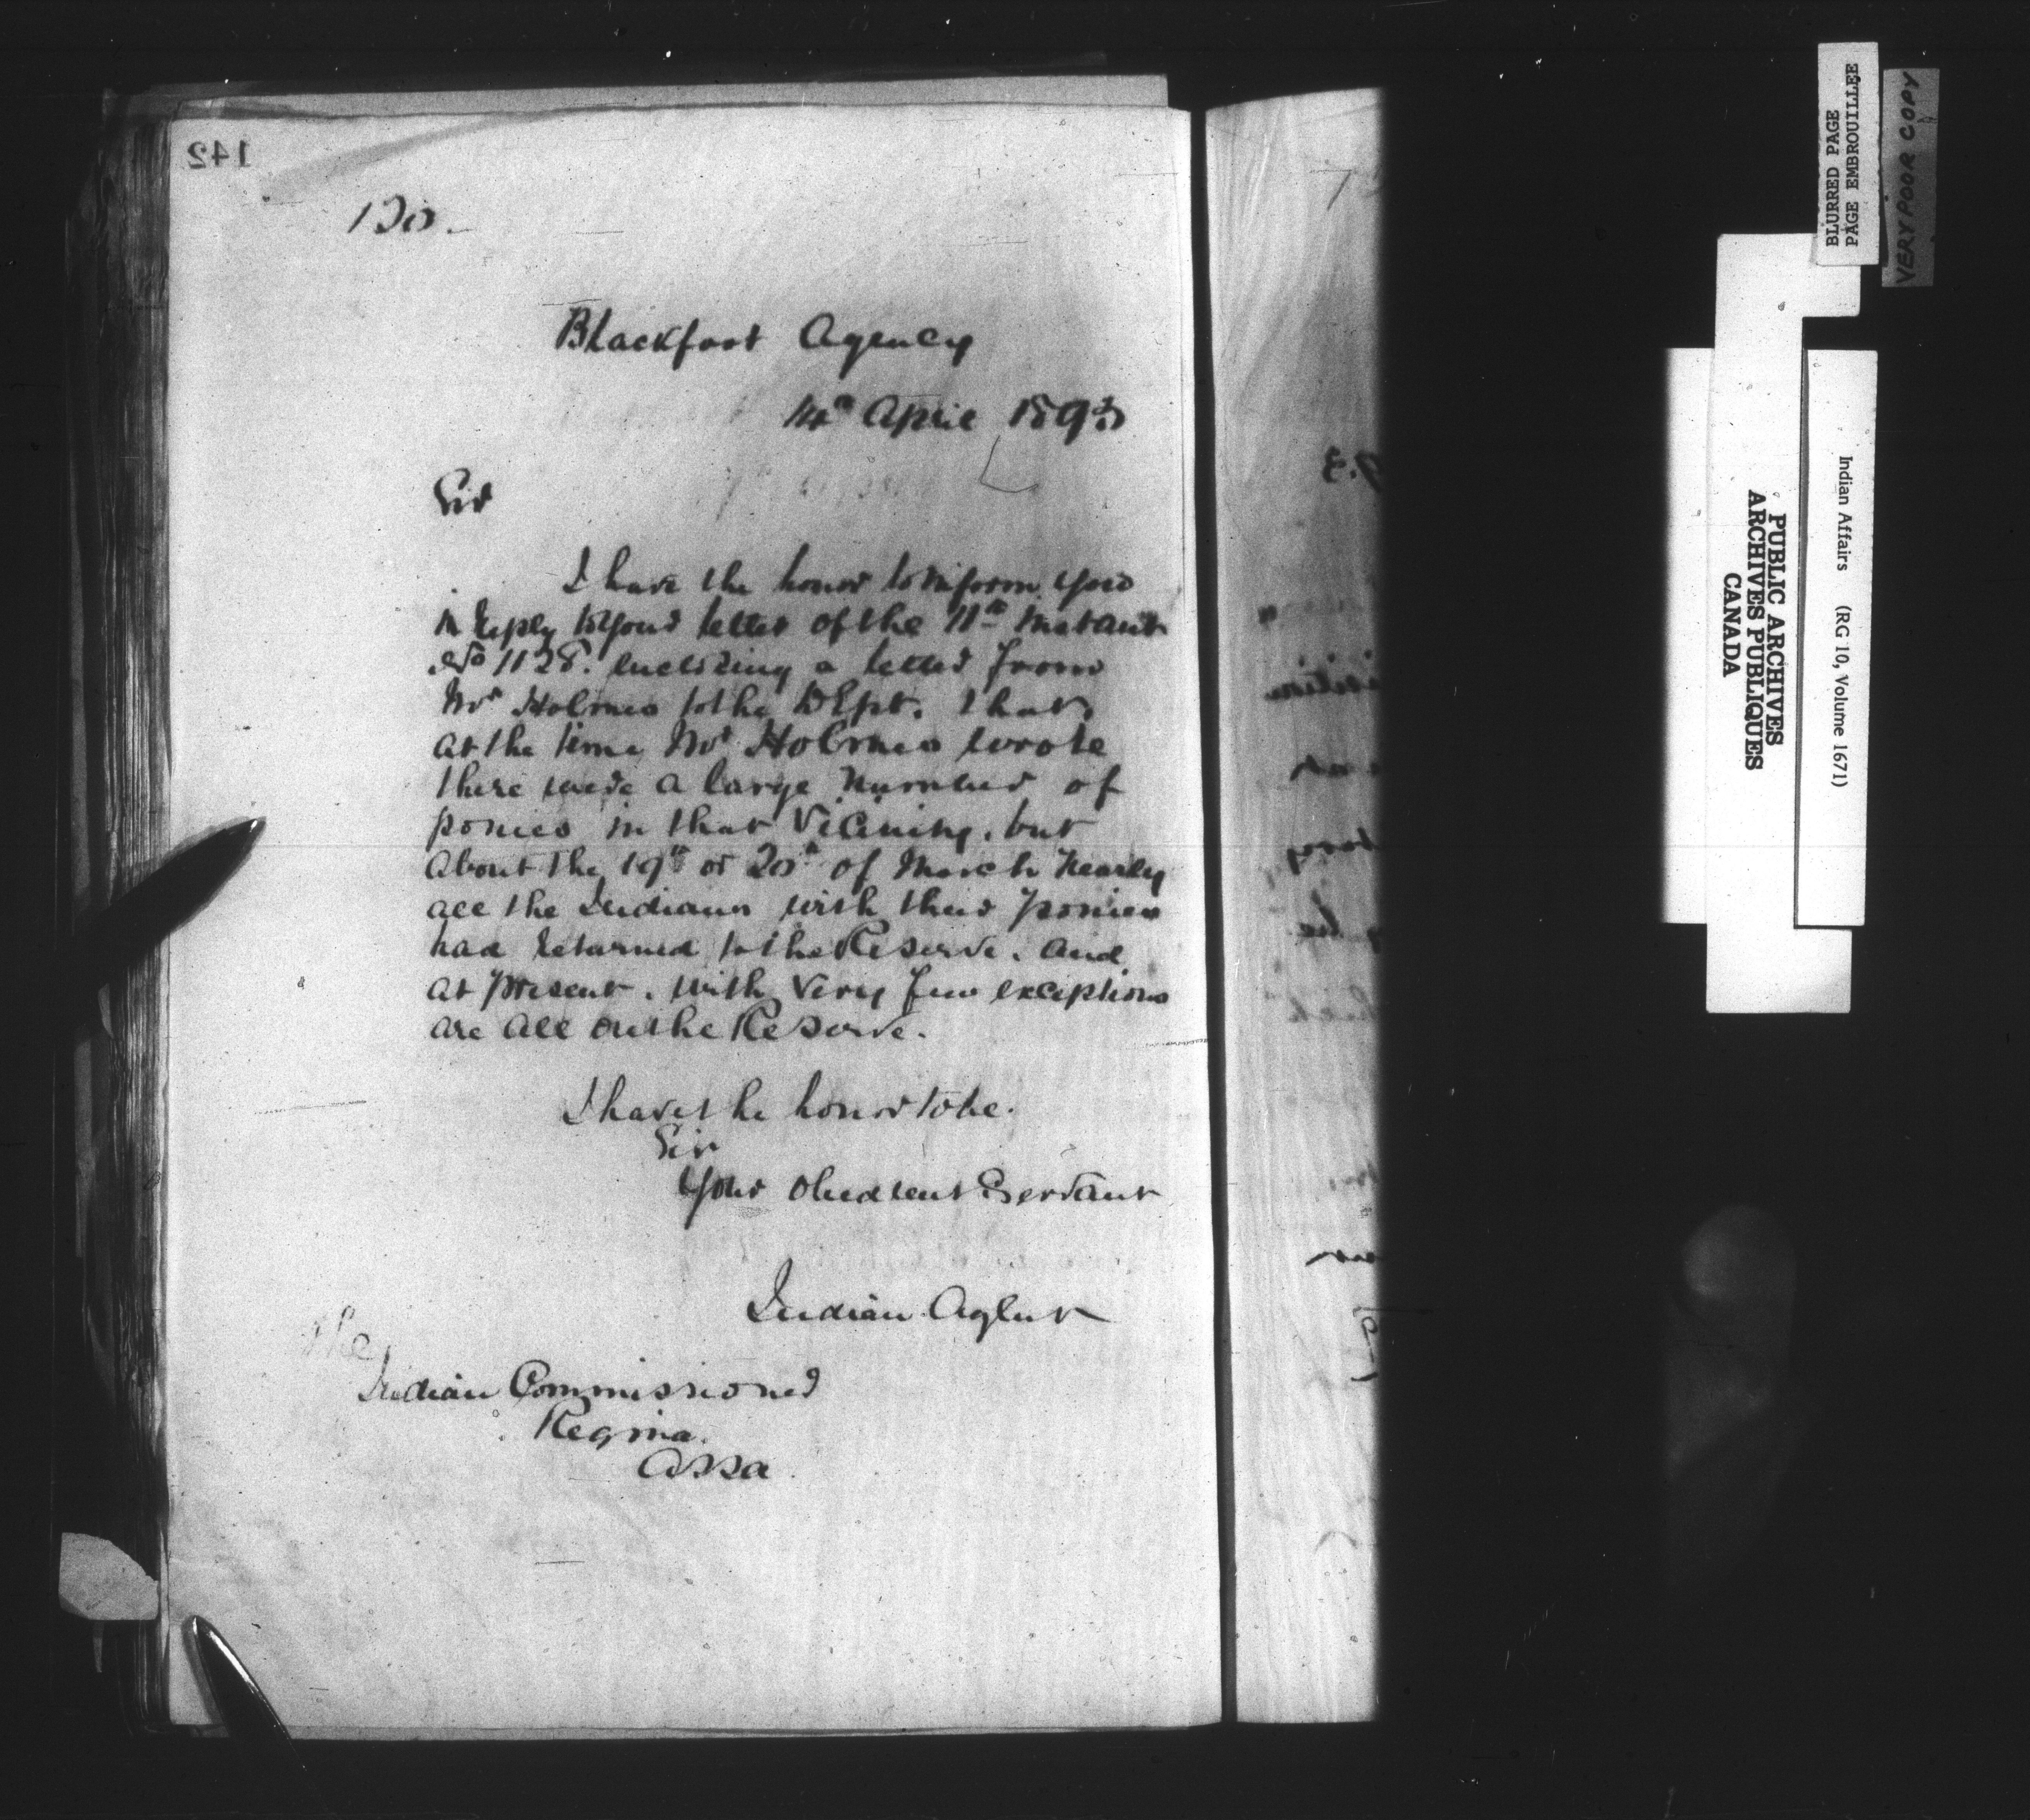 142
130.
Blackfoot Agency
14th April 1893
Sir
I have the honor to inform you
in reply to your letter of the 11th instant
No 1128. enclosing a letter from
Mr Holmes to the Dept. that
at the time Mr Holmes wrote
there were a large number of
ponies in that vicinity. but
about the 19th or 20th of March nearly
all the Indians with their ponies
had returned to the Reserve. and
at present. with very few exceptions
are all on the Reserve.
I have the honor to be.
Sir
Your obedient Servant
Indian Agent
The
Indian Commissioner
Regina.
Assa
BLURRED PAGE
PAGE EMBROUILLEE
VERY POOR COPY
PUBLIC ARCHIVES
ARCHIVES PUBLIQUES
CANADA
Indian Affairs (RG 10, Volume 1671)